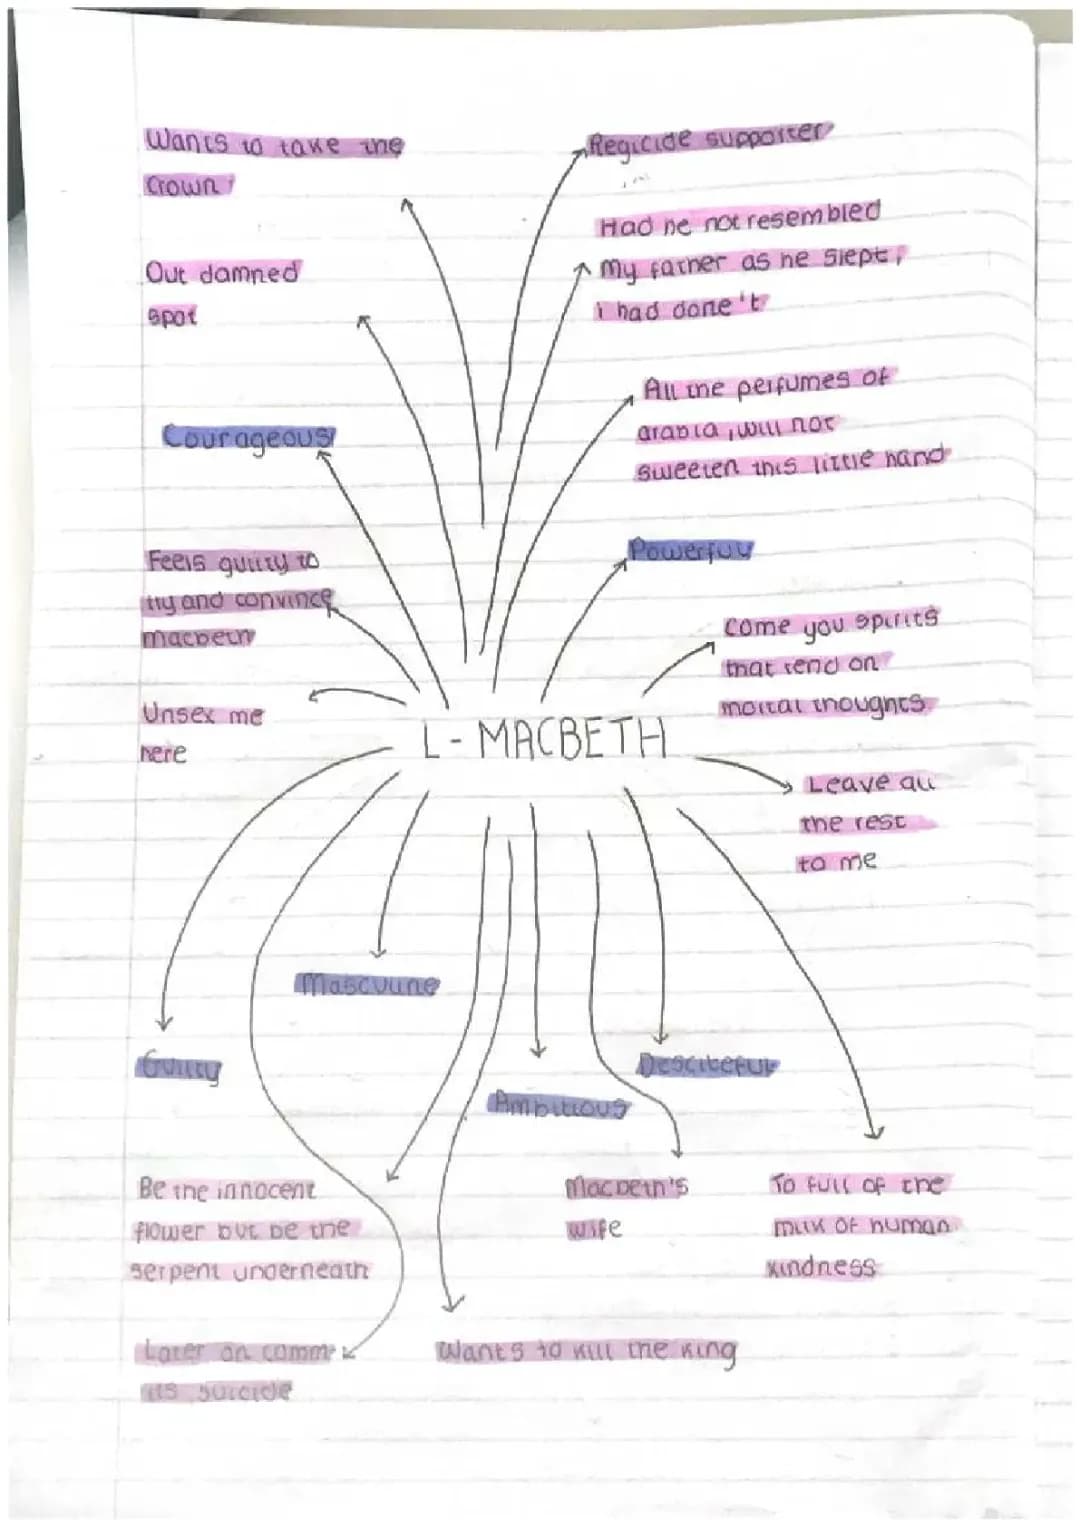 Wants to take the
Crown
Regicide supporter
Had he not resembled
my father as he slept,
i had done't
Out damned
spot
All the perfumes of
arabia, will not
sweeten this little hand
Courageous
Powerful
Feels guilty to
try and convince
macbeth
Come you spirits
that tend on
mortal thoughts
Unsex me
here
L-MACBETH
Leave all
the rest
to me
Masculine
Guilty
Desciteful
Ambitious
Be the innocent
flower but be the
serpent underneath
Macbeth's
wife
To full of the
milk of human
kindness
Later on comm
its suicide
Wants to kill the king